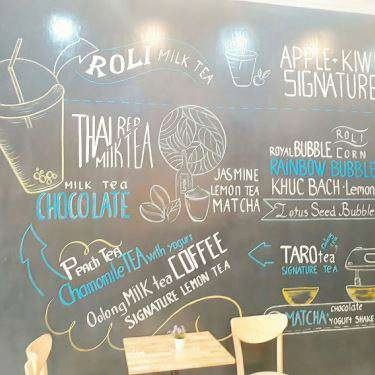 ROLI MILK TEA
APPLE + KIWI
SIGNATURE
THAI RED
MILK TEA
MILK TEA
CHOCOLATE
JASMINE
LEMON TEA
MATCHA
ROLI
ROYAL BUBBLE CORN
RAINBOW BUBBLE
KHUC BACH · Lemon
Lotus Seed Bubble
Peach Tea
Chamomile TEA with yogurt
Oolong MILK tea COFFEE
SIGNATURE LEMON TEA
TARO tea
SIGNATURE TEA
MATCHA + chocolate
YOGURT SHAKE